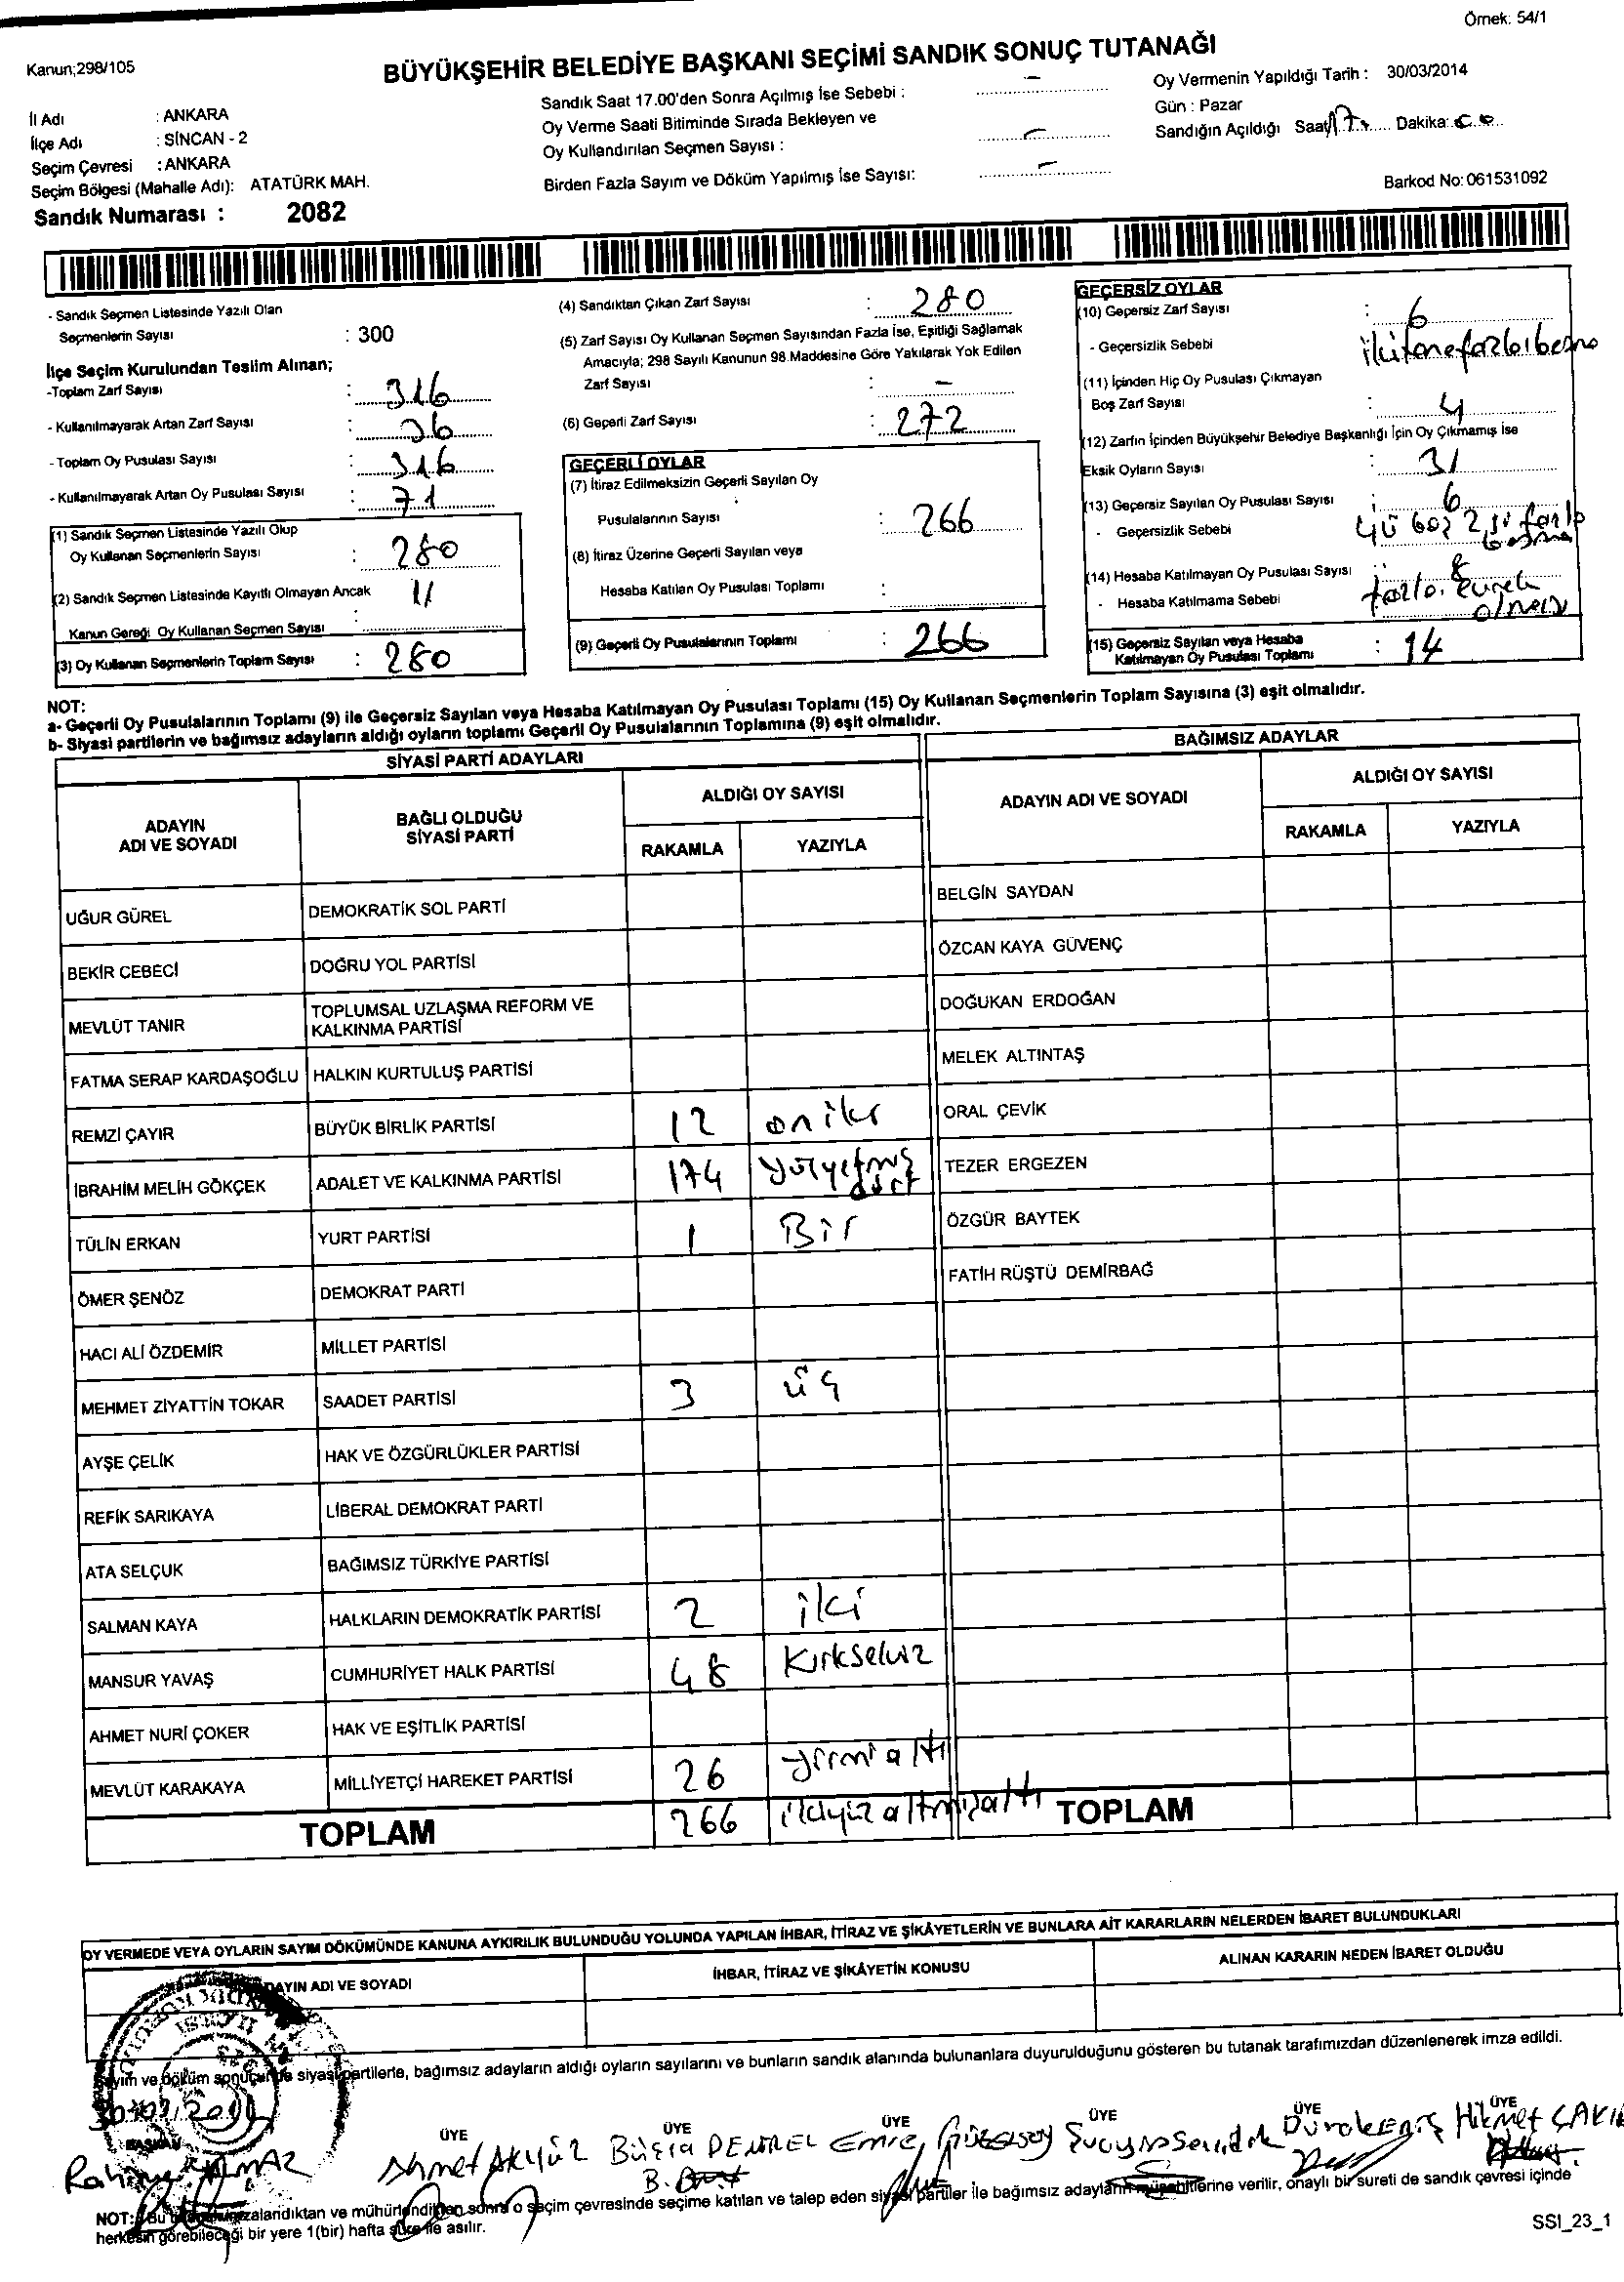 Örnek: 54/1
Kanun;298/105
BÜYÜKŞEHİR BELEDİYE BAŞKANI SEÇİMİ SANDIK SONUÇ TUTANAĞI
İl Adı : ANKARA
İlçe Adı : SİNCAN - 2
Seçim Çevresi : ANKARA
Seçim Bölgesi (Mahalle Adı): ATATÜRK MAH.
Sandık Numarası : 2082
Sandık Saat 17.00'den Sonra Açılmış İse Sebebi : –
Oy Verme Saati Bitiminde Sırada Bekleyen ve
Oy Kullandırılan Seçmen Sayısı : –
Birden Fazla Sayım ve Döküm Yapılmış İse Sayısı: –
Oy Vermenin Yapıldığı Tarih : 30/03/2014
Gün : Pazar
Sandığın Açıldığı Saat 17 Dakika:
Barkod No: 061531092
- Sandık Seçmen Listesinde Yazılı Olan
Seçmenlerin Sayısı : 300
İlçe Seçim Kurulundan Teslim Alınan;
-Toplam Zarf Sayısı : 316
- Kullanılmayarak Artan Zarf Sayısı : 36
- Toplam Oy Pusulası Sayısı : 316
- Kullanılmayarak Artan Oy Pusulası Sayısı : 71
(1) Sandık Seçmen Listesinde Yazılı Olup
Oy Kullanan Seçmenlerin Sayısı : 280
(2) Sandık Seçmen Listesinde Kayıtlı Olmayan Ancak
Kanun Gereği Oy Kullanan Seçmen Sayısı :
(3) Oy Kullanan Seçmenlerin Toplam Sayısı : 280
(4) Sandıktan Çıkan Zarf Sayısı : 280
(5) Zarf Sayısı Oy Kullanan Seçmen Sayısından Fazla İse, Eşitliği Sağlamak
Amacıyla; 298 Sayılı Kanunun 98.Maddesine Göre Yakılarak Yok Edilen
Zarf Sayısı : –
(6) Geçerli Zarf Sayısı : 272
GEÇERLİ OYLAR
(7) İtiraz Edilmeksizin Geçerli Sayılan Oy
Pusulalarının Sayısı : 266
(8) İtiraz Üzerine Geçerli Sayılan veya
Hesaba Katılan Oy Pusulası Toplamı :
(9) Geçerli Oy Pusulalarının Toplamı : 266
GEÇERSİZ OYLAR
(10) Geçersiz Zarf Sayısı : 6
- Geçersizlik Sebebi iki tane fazla basma
(11) İçinden Hiç Oy Pusulası Çıkmayan
Boş Zarf Sayısı : 4
(12) Zarfın İçinden Büyükşehir Belediye Başkanlığı İçin Oy Çıkmamış İse
Eksik Oyların Sayısı : 31
(13) Geçersiz Sayılan Oy Pusulası Sayısı : 6
- Geçersizlik Sebebi 4ü boş 2si fazla
basma
(14) Hesaba Katılmayan Oy Pusulası Sayısı : 8
- Hesaba Katılmama Sebebi fazla evrak
olması
(15) Geçersiz Sayılan veya Hesaba
Katılmayan Oy Pusulası Toplamı : 14
NOT:
a- Geçerli Oy Pusulalarının Toplamı (9) ile Geçersiz Sayılan veya Hesaba Katılmayan Oy Pusulası Toplamı (15) Oy Kullanan Seçmenlerin Toplam Sayısına (3) eşit olmalıdır.
b- Siyasi partilerin ve bağımsız adayların aldığı oyların toplamı Geçerli Oy Pusulalarının Toplamına (9) eşit olmalıdır.
SİYASİ PARTİ ADAYLARI
ADAYIN
ADI VE SOYADI
BAĞLI OLDUĞU
SİYASİ PARTİ
ALDIĞI OY SAYISI
RAKAMLA YAZIYLA
UĞUR GÜREL DEMOKRATİK SOL PARTİ
BEKİR CEBECİ DOĞRU YOL PARTİSİ
MEVLÜT TANIR TOPLUMSAL UZLAŞMA REFORM VE
KALKINMA PARTİSİ
FATMA SERAP KARDAŞOĞLU HALKIN KURTULUŞ PARTİSİ
REMZİ ÇAYIR BÜYÜK BİRLİK PARTİSİ 12 oniki
İBRAHİM MELİH GÖKÇEK ADALET VE KALKINMA PARTİSİ 174 yüzyetmiş
dört
TÜLİN ERKAN YURT PARTİSİ 1 Bir
ÖMER ŞENÖZ DEMOKRAT PARTİ
HACI ALİ ÖZDEMİR MİLLET PARTİSİ
MEHMET ZİYATTİN TOKAR SAADET PARTİSİ 3 üç
AYŞE ÇELİK HAK VE ÖZGÜRLÜKLER PARTİSİ
REFİK SARIKAYA LİBERAL DEMOKRAT PARTİ
ATA SELÇUK BAĞIMSIZ TÜRKİYE PARTİSİ
SALMAN KAYA HALKLARIN DEMOKRATİK PARTİSİ 2 iki
MANSUR YAVAŞ CUMHURİYET HALK PARTİSİ 48 Kırksekiz
AHMET NURİ ÇOKER HAK VE EŞİTLİK PARTİSİ
MEVLÜT KARAKAYA MİLLİYETÇİ HAREKET PARTİSİ 26 yirmialtı
TOPLAM 266 ikiyüzaltmışaltı
BAĞIMSIZ ADAYLAR
ADAYIN ADI VE SOYADI
ALDIĞI OY SAYISI
RAKAMLA YAZIYLA
BELGİN SAYDAN
ÖZCAN KAYA GÜVENÇ
DOĞUKAN ERDOĞAN
MELEK ALTINTAŞ
ORAL ÇEVİK
TEZER ERGEZEN
ÖZGÜR BAYTEK
FATİH RÜŞTÜ DEMİRBAĞ
TOPLAM
OY VERMEDE VEYA OYLARIN SAYIM DÖKÜMÜNDE KANUNA AYKIRILIK BULUNDUĞU YOLUNDA YAPILAN İHBAR, İTİRAZ VE ŞİKÂYETLERİN VE BUNLARA AİT KARARLARIN NELERDEN İBARET BULUNDUKLARI
ADI VE SOYADI
İHBAR, İTİRAZ VE ŞİKÂYETİN KONUSU
ALINAN KARARIN NEDEN İBARET OLDUĞU
Sayım ve döküm sonucunda siyasi partilerle, bağımsız adayların aldığı oyların sayılarını ve bunların sandık alanında bulunanlara duyurulduğunu gösteren bu tutanak tarafımızdan düzenlenerek imza edildi.
BAŞKAN ÜYE ÜYE ÜYE ÜYE ÜYE ÜYE
Ahmet AKYÜZ Büşra DEMİREL Emre Hikmet
NOT: Bu sonra o seçim çevresinde seçime katılan ve talep eden siyasi partiler ile bağımsız adayların verilir, onaylı bir sureti de sandık çevresi içinde
herkesin görebileceği bir yere 1(bir) hafta süre ile asılır.
SSI_23_1